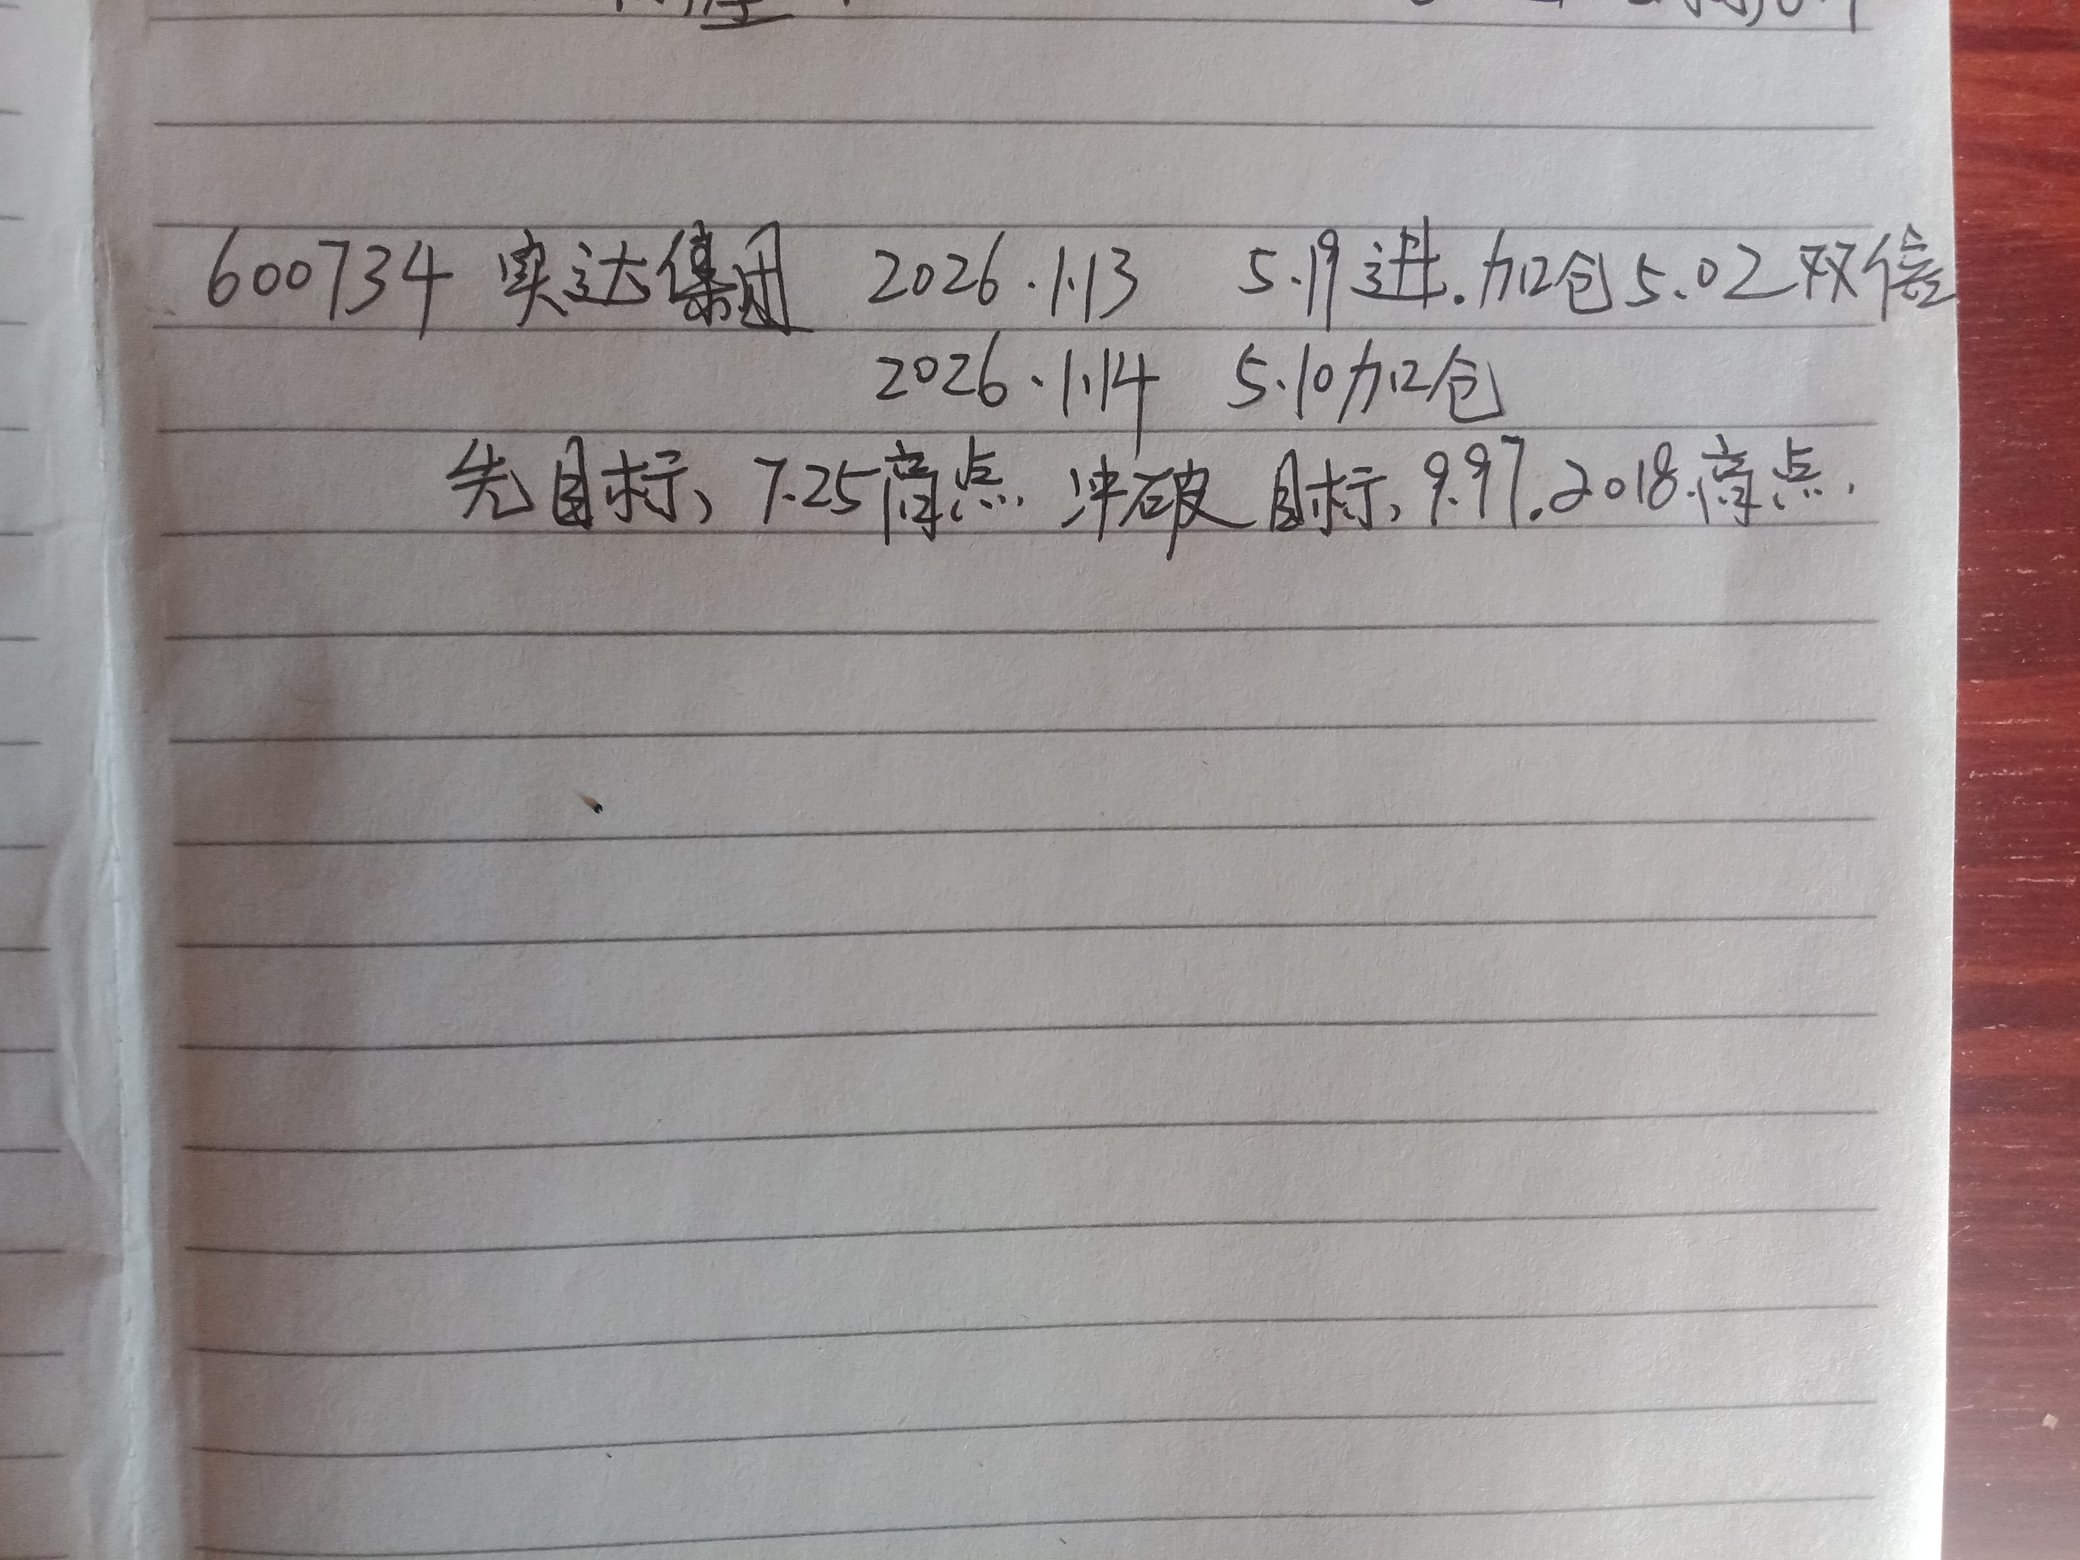 600734 实达集团 2026.1.13 5.19进.加仓5.02双倍
2026.1.14 5.10加仓
先目标、7.25高点.冲破目标、9.97.2018.高点.